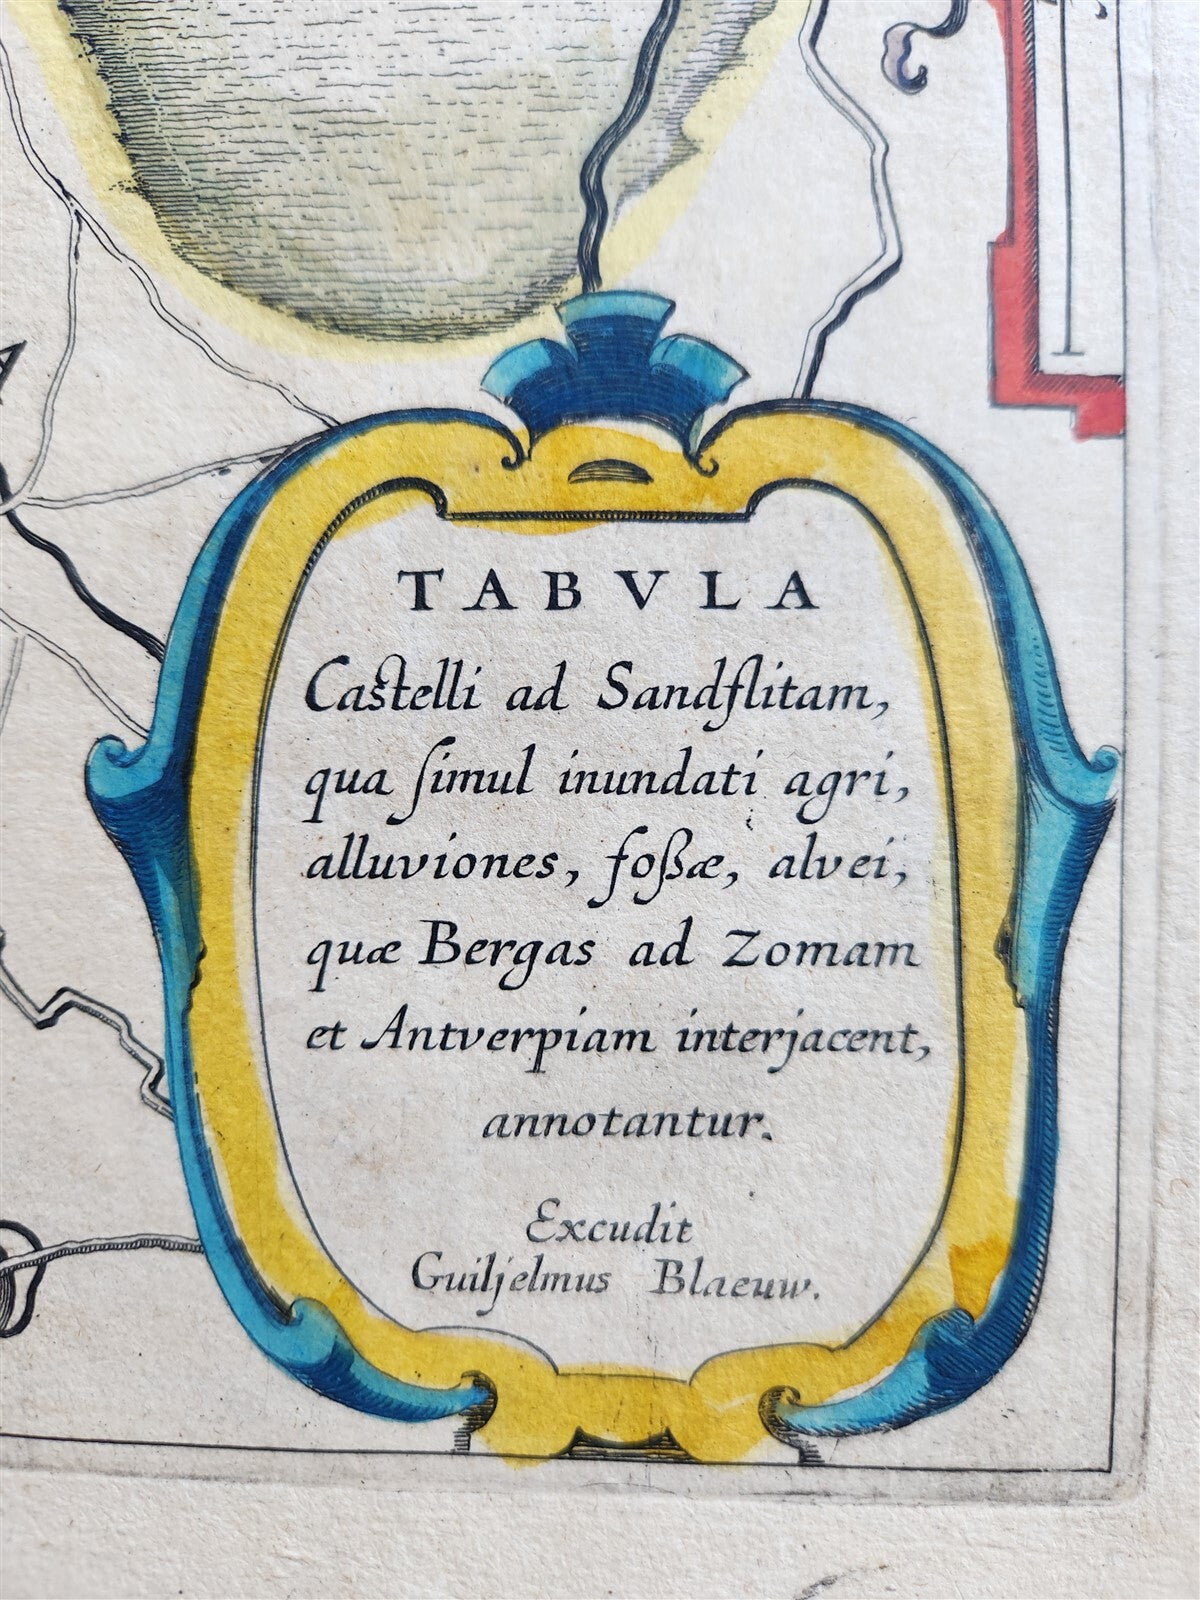 TABVLA
Castelli ad Sandflitam,
qua ſimul inundati agri,
alluviones, foßæ, alvei,
quæ Bergas ad Zomam
et Antverpiam interjacent,
annotantur.
Excudit
Guiljelmus Blaeuw.